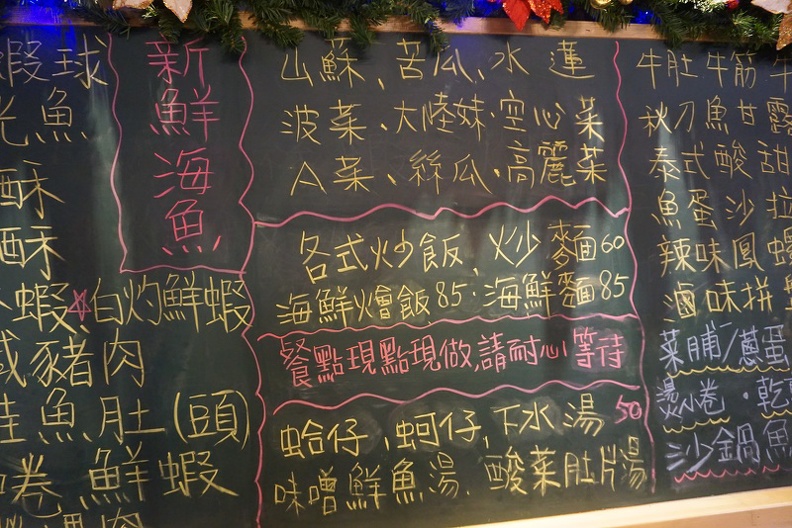 蝦球
光魚
酥
酥
蝦
豬肉
鮭魚肚(頭)
捲 鮮蝦
肉
新鮮海魚
☆白灼鮮蝦
山蘇、苦瓜、水蓮
菠菜、大陸妹、空心菜
A菜、絲瓜、高麗菜
各式炒飯、炒麵60
海鮮燴飯85、海鮮麵85
餐點現點現做,請耐心等待
蛤仔、蚵仔、下水湯50
味噌鮮魚湯、酸菜肚片湯
牛肚 牛筋 牛
秋刀魚甘露
泰式酸甜
魚蛋沙拉
辣味鳳螺
滷味拼盤
菜脯/蔥蛋
燙小卷・乾
沙鍋魚